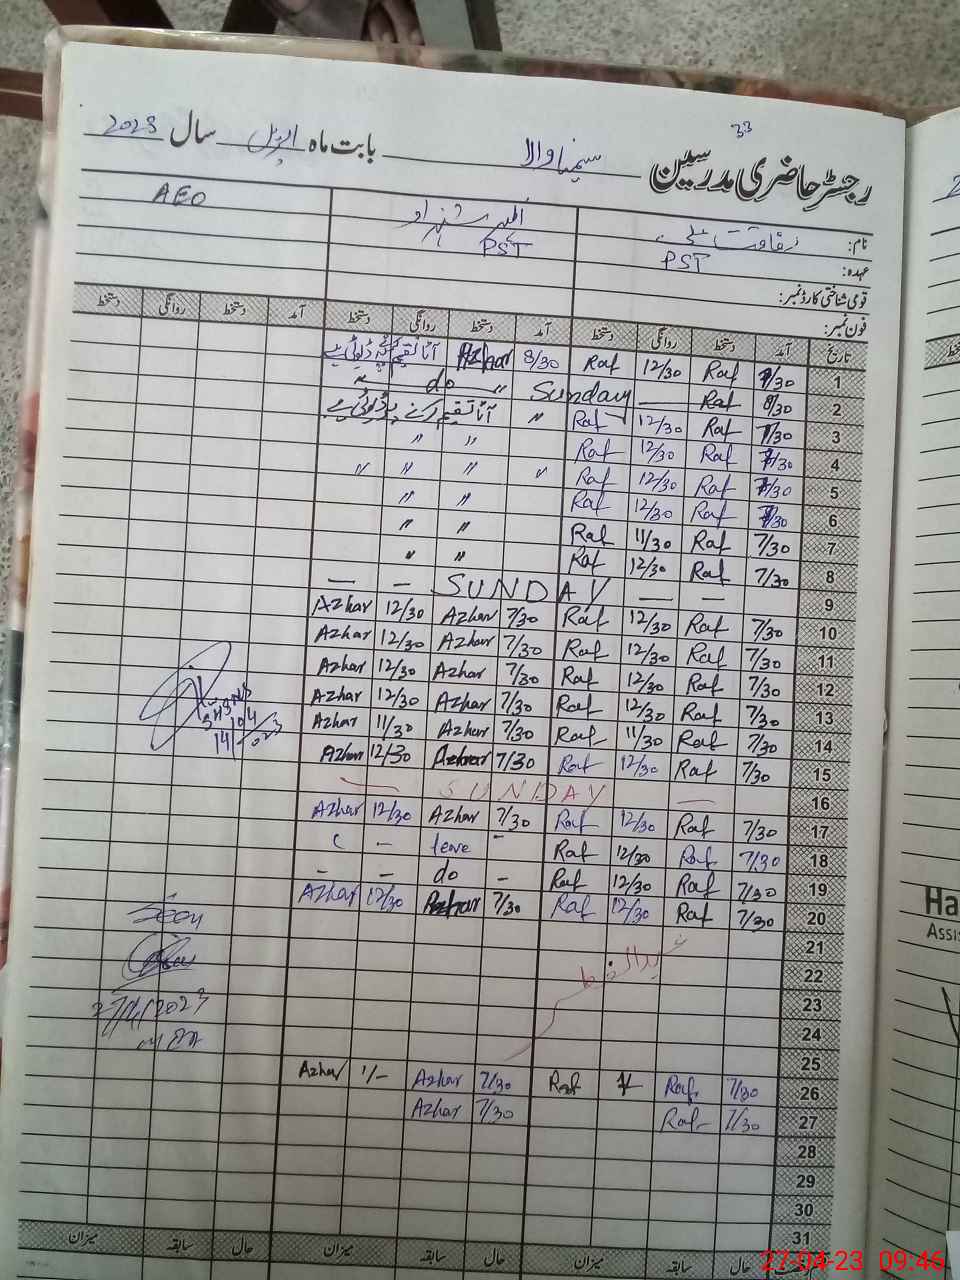 33
رجسٹر حاضری مدرسین سیمنا والا بابت ماہ اپریل سال 2023
نام: رفاقت علی اظہر شہزاد AEO
عہدہ: PST PST
قومی شناختی کارڈ نمبر:
فون نمبر:
تاریخ آمد دستخط روانگی دستخط آمد دستخط روانگی دستخط آمد دستخط روانگی دستخط
1 7/30 Raf 12/30 Raf 8/30 Azhar آٹا تقسیم ڈیوٹی ہے
2 8/30 Raf — Sunday " do "
3 7/30 Raf 12/30 Raf " آٹا تقسیم کرنے پر ڈیوٹی ہے
4 7/30 Raf 12/30 Raf " "
5 7/30 Raf 12/30 Raf " " " "
6 7/30 Raf 12/30 Raf " "
7 7/30 Raf 11/30 Raf " "
8 7/30 Raf 12/30 Raf " "
9 — — SUNDAY — —
10 7/30 Raf 12/30 Raf 7/30 Azhar 12/30 Azhar
11 7/30 Raf 12/30 Raf 7/30 Azhar 12/30 Azhar
12 7/30 Raf 12/30 Raf 7/30 Azhar 12/30 Azhar
13 7/30 Raf 12/30 Raf 7/30 Azhar 12/30 Azhar
14 7/30 Raf 11/30 Raf 7/30 Azhar 11/30 Azhar
15 7/30 Raf 12/30 Raf 7/30 Azhar 12/30 Azhar
16 — SUNDAY —
17 7/30 Raf 12/30 Raf 7/30 Azhar 12/30 Azhar
18 7/30 Raf 12/30 Raf - leave -
19 7/30 Raf 12/30 Raf - do - -
20 7/30 Raf 12/30 Raf 7/30 Azhar 12/30 Azhar
21
22 عید الفطر
23
24
25
26 7/30 Raf 1/- Raf 7/30 Azhar 1/- Azhar
27 7/30 Raf 7/30 Azhar
28
29
30
31
14/04/2023
Seen
27/4/2023
حال سابقہ میزان حال سابقہ میزان حال سابقہ میزان
Ha
Assis
27-04-23 09:46